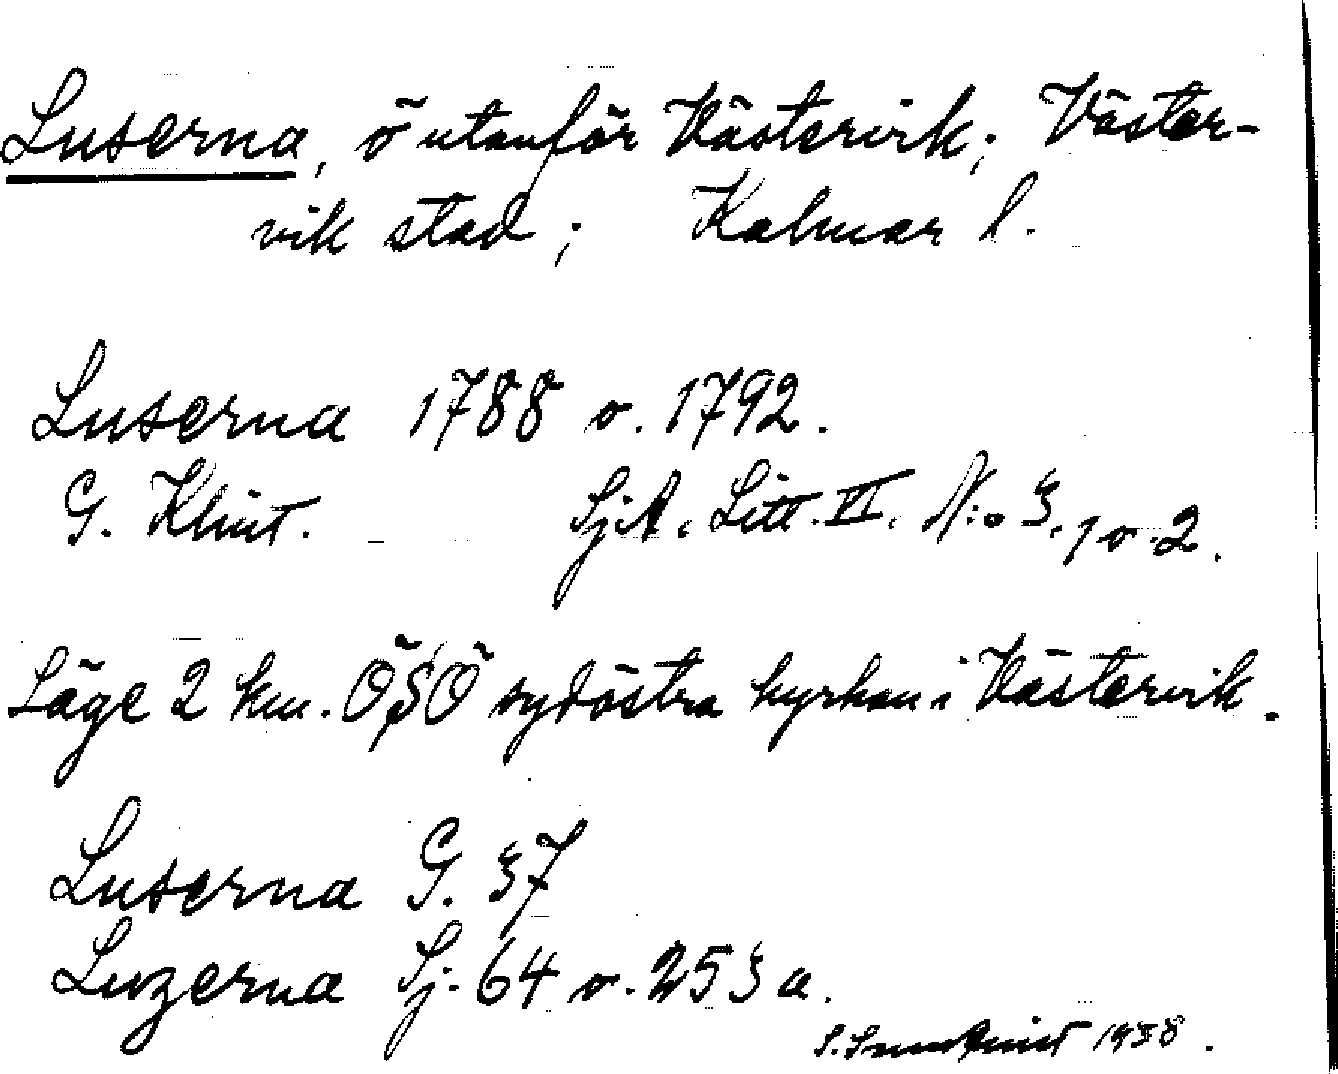 Luserna, ö utanför Västervik; Väster-
vik stad; Kalmar l.
Luserna 1788 o. 1792.
G. Klint. SjA. Litt. VI. N:o 3, 1 o. 2.
Läge 2 km. ÖSÖ sydöstra kyrkan i Västervik.
Luserna G. 37
Luzerna Sj. 64 o. 253 a.
S. 1938.